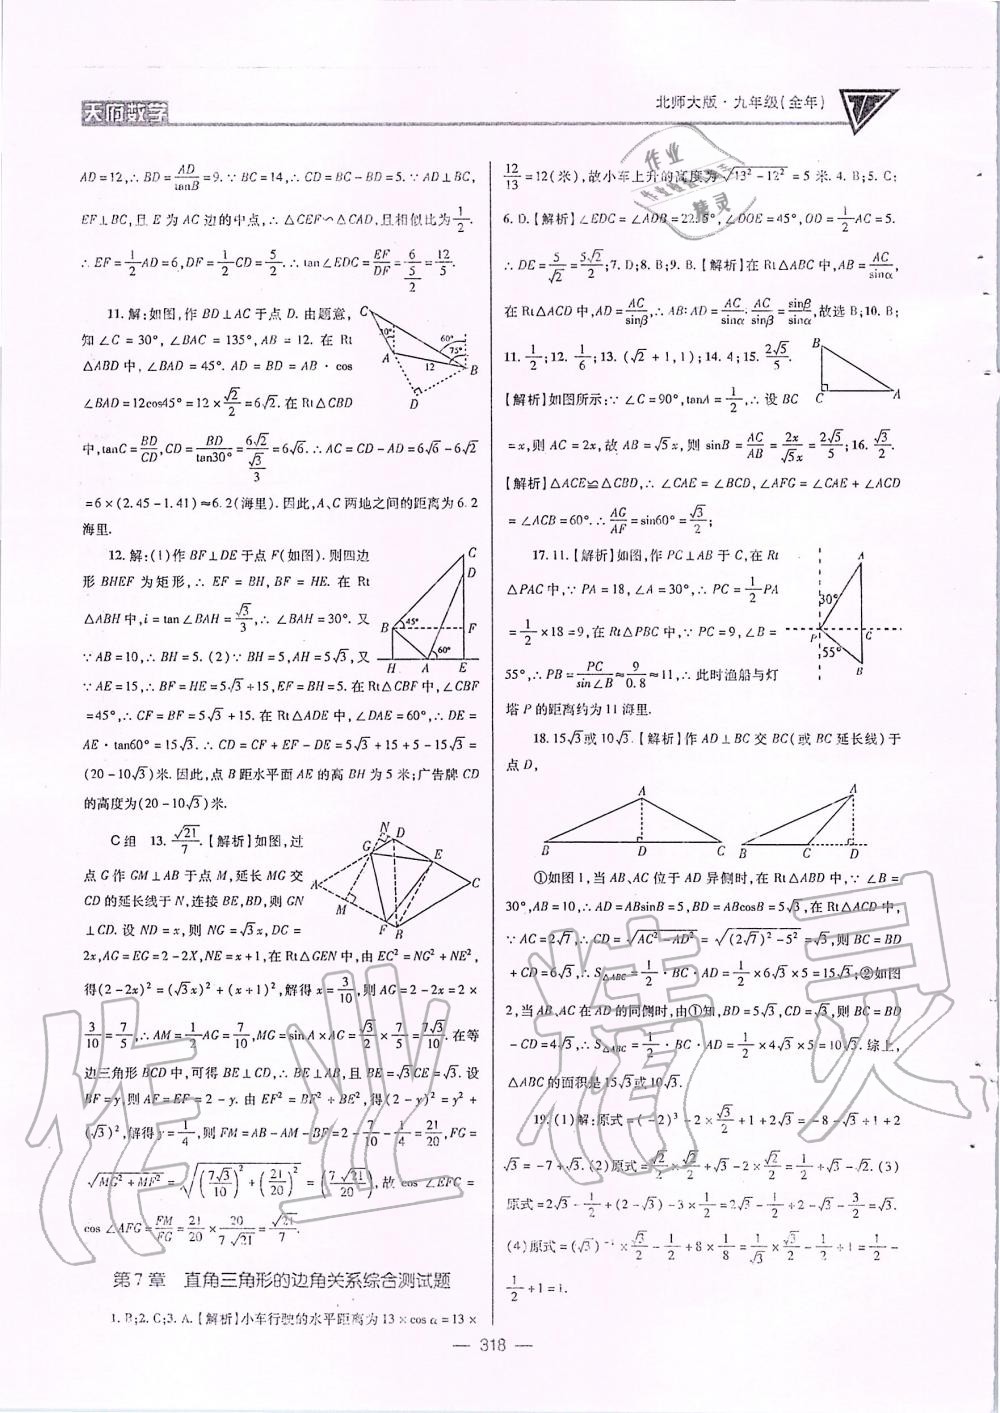 天府数学
北师大版·九年级(全年)
AD=12,∴BD=AD/tanB=9.∵BC=14,∴CD=BC-BD=5.∵AD⊥BC,
EF⊥BC,且E为AC边的中点,∴△CEF∽△CAD,且相似比为1/2.
∴EF=1/2AD=6,DF=1/2CD=5/2.∴tan∠EDC=EF/DF=6/(5/2)=12/5.
11.解:如图,作BD⊥AC于点D.由题意,
知∠C=30°,∠BAC=135°,AB=12.在Rt
△ABD中,∠BAD=45°.AD=BD=AB·cos
∠BAD=12cos45°=12×√2/2=6√2.在Rt△CBD
中,tanC=BD/CD,CD=BD/tan30°=6√2/(√3/3)=6√6.∴AC=CD-AD=6√6-6√2
=6×(2.45-1.41)≈6.2(海里).因此,A、C两地之间的距离为6.2
海里.
C 30° 60° 75° A 12 B D
12.解:(1)作BF⊥DE于点F(如图).则四边
形BHEF为矩形,∴EF=BH,BF=HE.在Rt
△ABH中,i=tan∠BAH=√3/3,∴∠BAH=30°.又
∵AB=10,∴BH=5.(2)∵BH=5,AH=5√3,又
∵AE=15,∴BF=HE=5√3+15,EF=BH=5.在Rt△CBF中,∠CBF
=45°,∴CF=BF=5√3+15.在Rt△ADE中,∠DAE=60°,∴DE=
AE·tan60°=15√3.∴CD=CF+EF-DE=5√3+15+5-15√3=
(20-10√3)米.因此,点B距水平面AE的高BH为5米;广告牌CD
的高度为(20-10√3)米.
C D B 45° F 60° H A E
C组 13.√21/7.【解析】如图,过
点G作GM⊥AB于点M,延长MG交
CD的延长线于N,连接BE,BD,则GN
⊥CD.设ND=x,则NG=√3x,DC=
2x,AG=EG=2-2X,NE=x+1,在Rt△GEN中,由EC²=NG²+NE²,
得(2-2x)²=(√3x)²+(x+1)²,解得x=3/10,则AG=2-2x=2×
3/10=7/5,∴AM=1/2AG=7/10,MG=sinA×AG=√3/2×7/5=7√3/10.在等
边三角形BCD中,可得BE⊥CD,∴BE⊥AB,且BE=√3CE=√3.设
BF=y,则AF=EF=2-y.由EF²=BF²+BE²,得(2-y)²=y²+
(√3)²,解得y=1/4,则FM=AB-AM-BF=2-7/10-1/4=21/20,FG=
√(MG²+MF²)=√((7√3/10)²+(21/20)²)=(7√21/20),故cos∠EFC=
cos∠AFG=FM/FG=21/20×20/(7√21)=√21/7.
N D G E A C M F B
第7章 直角三角形的边角关系综合测试题
1.B;2.C;3.A.【解析】小车行驶的水平距离为13×cosα=13×
12/13=12(米),故小车上升的高度为√(13²-12²)=5米.4.B;5.C;
6.D.【解析】∠EDC=∠ADB=22.5°,∠DOE=45°,OD=1/2AC=5.
∴DE=5/√2=5√2/2;7.D;8.B;9.B.【解析】在Rt△ABC中,AB=AC/sinα,
在Rt△ACD中,AD=AC/sinβ,∴AB:AD=AC/sinα:AC/sinβ=sinβ/sinα,故选B;10.B;
11.1/2;12.1/6;13.(√2+1,1);14.4;15.2√5/5.
【解析】如图所示:∵∠C=90°,tanA=1/2,∴设BC
=x,则AC=2x,故AB=√5x,则sinB=AC/AB=2x/√5x=2√5/5;16.√3/2.
B C A
【解析】△ACE≌△CBD,∴∠CAE=∠BCD,∠AFG=∠CAE+∠ACD
=∠ACB=60°.∴AG/AF=sin60°=√3/2;
17.11.【解析】如图,作PC⊥AB于C,在Rt
△PAC中,∵PA=18,∠A=30°,∴PC=1/2PA
=1/2×18=9,在Rt△PBC中,∵PC=9,∠B=
55°,∴PB=PC/sin∠B≈9/0.8≈11,∴此时渔船与灯
塔P的距离约为11海里.
A 30° P C 55° B
18.15√3或10√3.【解析】作AD⊥BC交BC(或BC延长线)于
点D,
A B D C A B C D
①如图1,当AB、AC位于AD异侧时,在Rt△ABD中,∵∠B=
30°,AB=10,∴AD=ABsinB=5,BD=ABcosB=5√3,在Rt△ACD中,
∵AC=2√7,∴CD=√(AC²-AD²)=√((2√7)²-5²)=√3,则BC=BD
+CD=6√3,∴S△ABC=1/2·BC·AD=1/2×6√3×5=15√3;②如图
2,当AB、AC在AD的同侧时,由①知,BD=5√3,CD=√3,则BC=BD
-CD=4√3,∴S△ABC=1/2·BC·AD=1/2×4√3×5=10√3.综上,
△ABC的面积是15√3或10√3.
19.(1)解:原式=(-2)³-2×√3/2+1+2√3=-8-√3+1+2
√3=-7+√3.(2)原式=√2/2×√2/2+√3-2×√2/2=1/2+√3-√2.(3)
原式=2√3-1/2+(2-√3)-1/2×4=2√3-1/2+2-√3-2=√3.
— 318 —